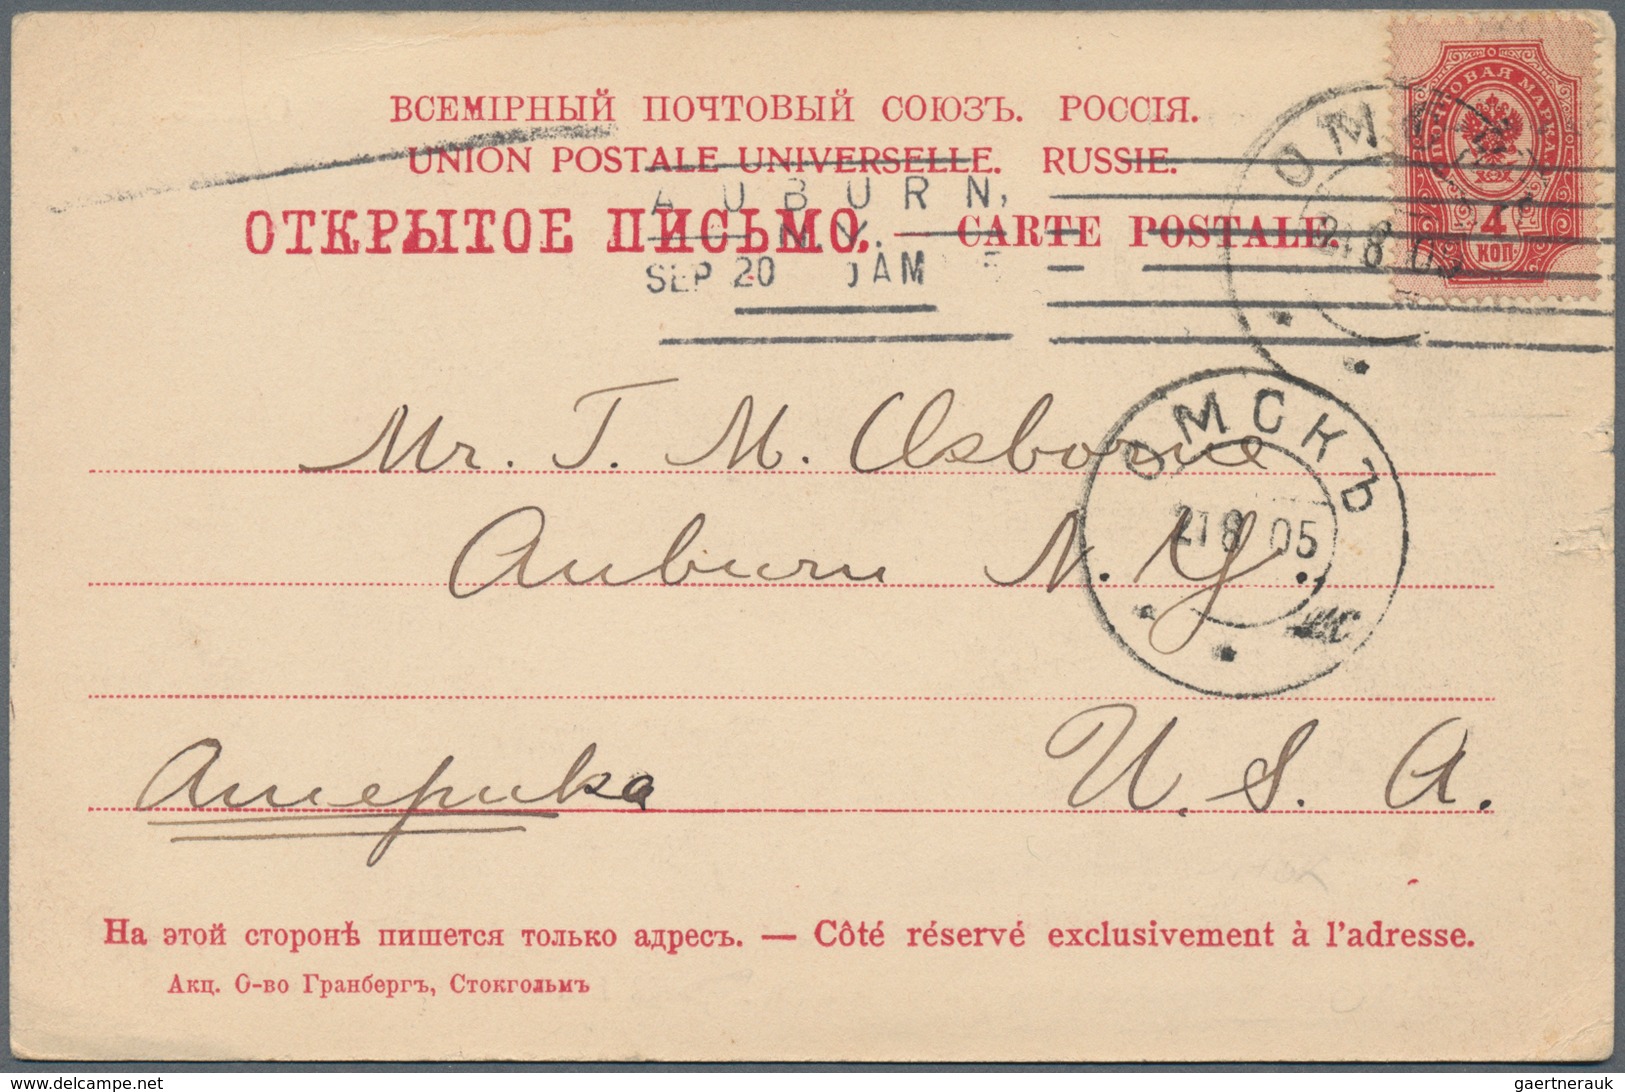 ВСЕМІРНЫЙ ПОЧТОВЫЙ СОЮЗЪ. РОССІЯ.
UNION POSTALE UNIVERSELLE. RUSSIE.
ОТКРЫТОЕ ПИСЬМО. — CARTE POSTALE.
ПОЧТОВАЯ МАРКА
4
КОП.
AUBURN,
N.Y.
SEP 20 AM
ОМСКЪ
21 8 05
Mr. T. M. Osborne
ОМСКЪ
21 8 05
Auburn N. Y.
Америка U. S. A.
На этой сторонѣ пишется только адресъ. — Côté réservé exclusivement à l'adresse.
Акц. О-во Гранбергъ, Стокгольмъ
www.delcampe.net
gaertnerauk